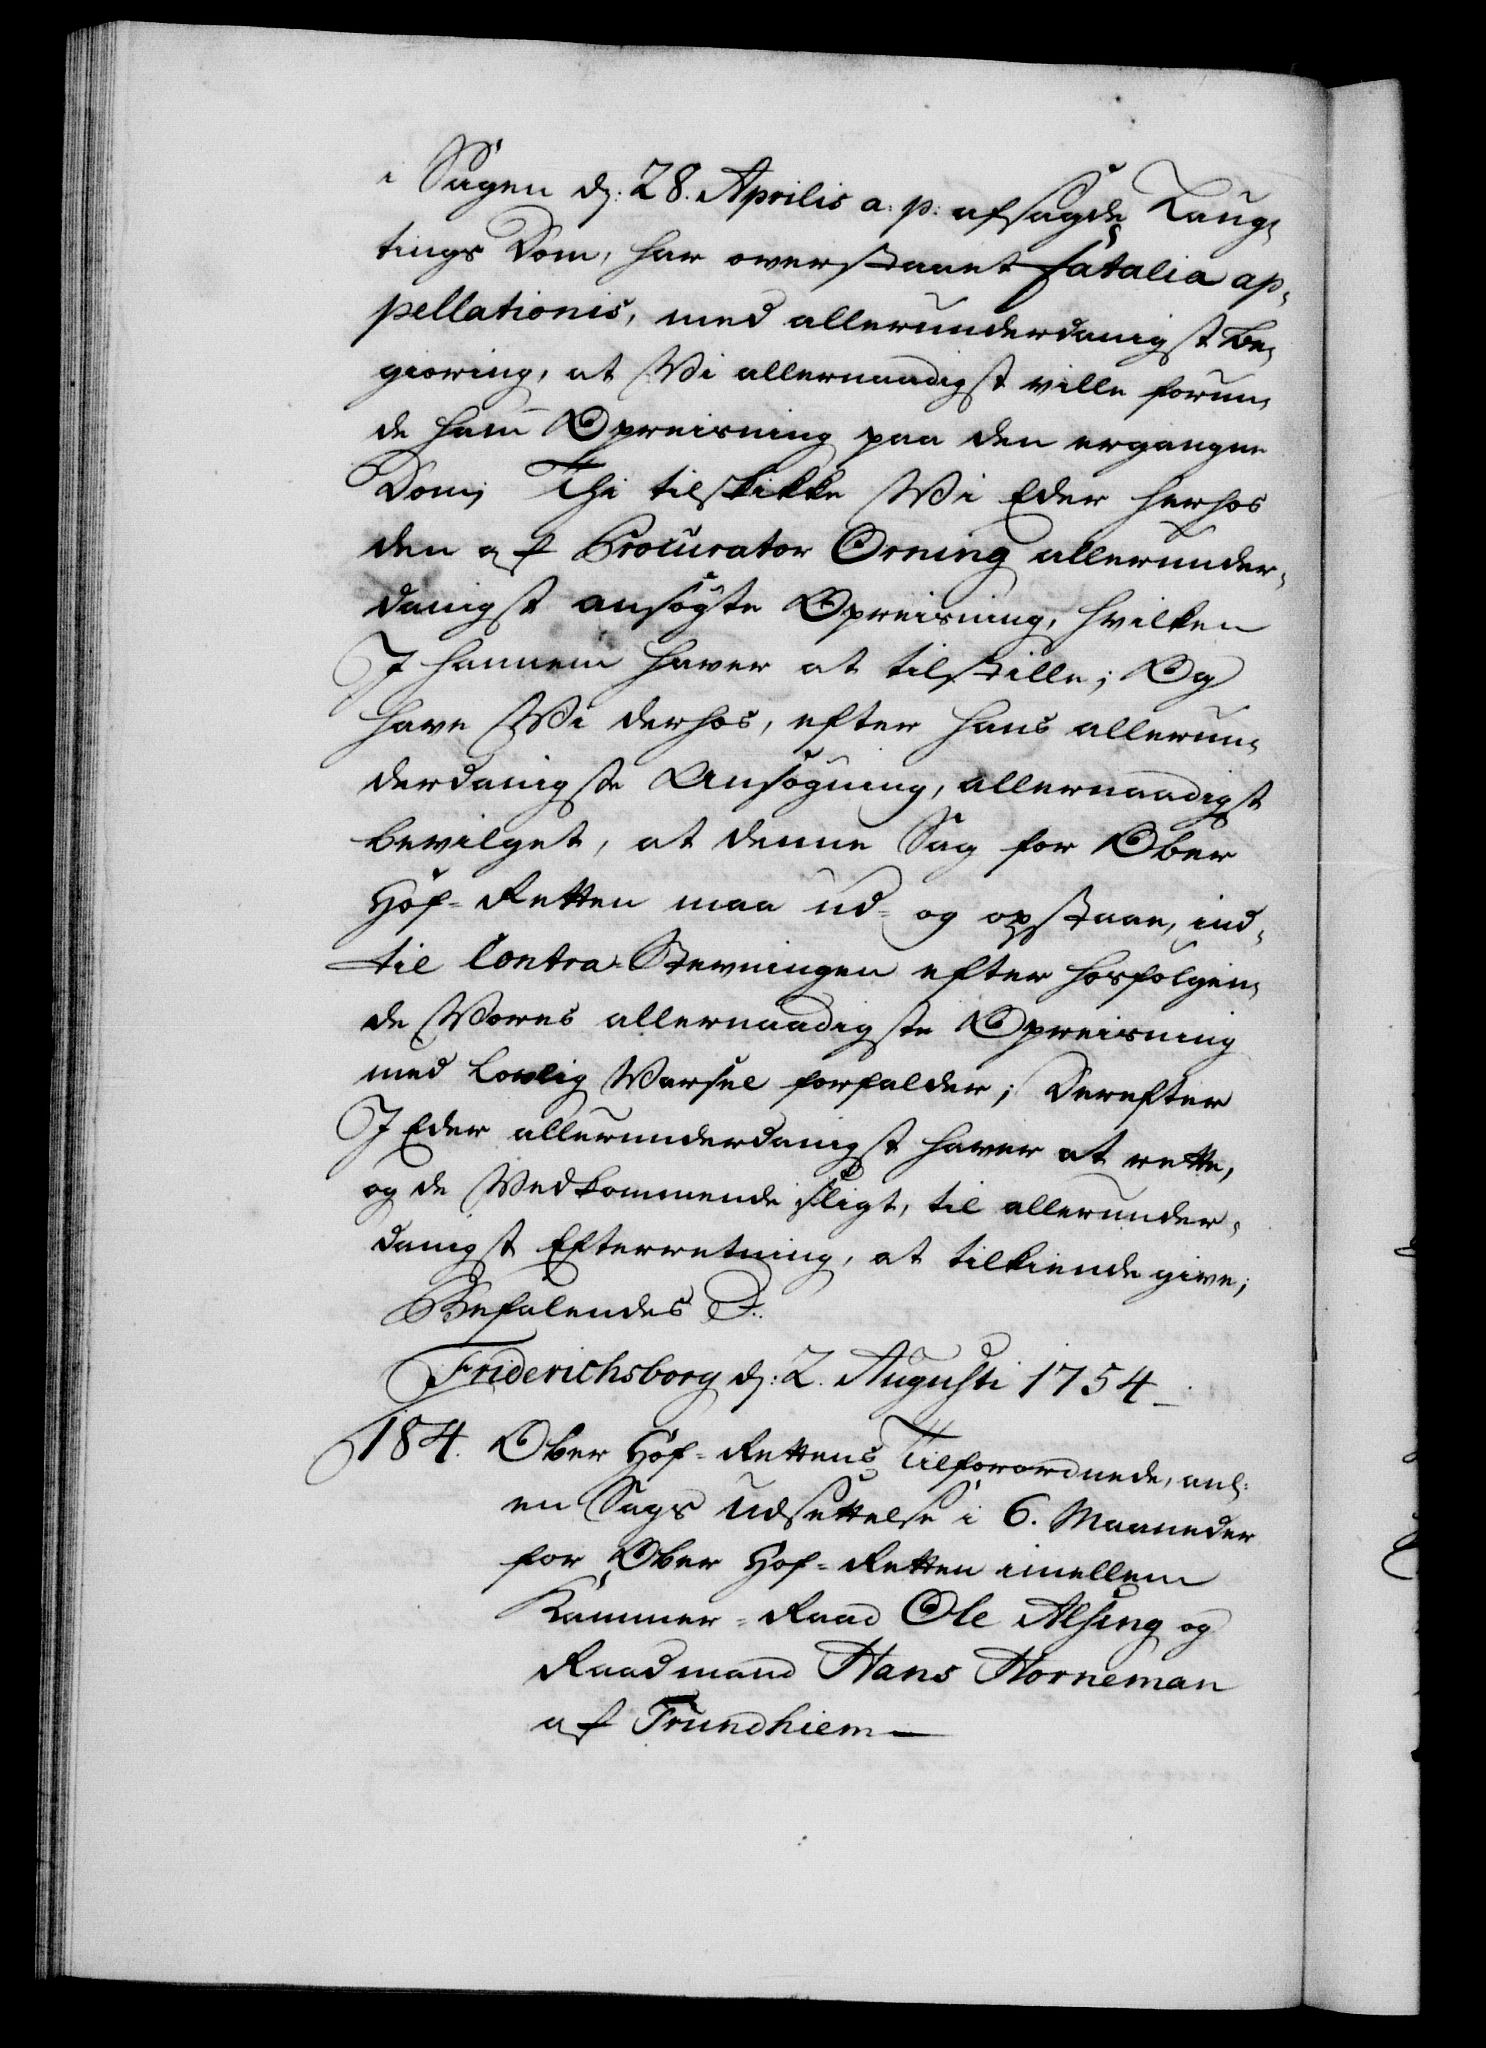 i Sagen d: 28. Aprilis a: p: afsagde Laug-
tings Dom, har overstaaet fatalia ap-
pellationis, med allerunderdanigst Be-
giæring, at Wi allernaadigst ville forun-
de ham Opreisning paa den ergangne
Dom; Thi tilskikke Wi Eder herhos
den af Procurator Orning allerunder-
danigst ansøgte Opreisning, hvilken
I hannem haver at tilstille; Og
have Wi derhos, efter hans allerun-
derdanigste Ansøgning, allernaadigst
bevilget, at denne Sag for Ober
Hof-Retten maa ud- og opstaae, ind-
til Contra-Stevningen efter hosfølgen-
de Wores allernaadigste Opreisning
med lovlig Warsel forfalder; Derefter
I Eder allerunderdanigst haver at rette,
og de Wedkommende sligt, til allerunder-
danigst Efterretning, at tilkiende give;
Befalendes &.
Friderichsborg d: 2. Augusti 1754
184. Ober Hof-Rettens Tilforordnede, anl:
en Sags Udsettelse i 6. Maaneder
for Ober Hof-Retten imellem
Kammer-Raad Ole Alsing og
Raadmand Hans Horneman
af Trundhiem